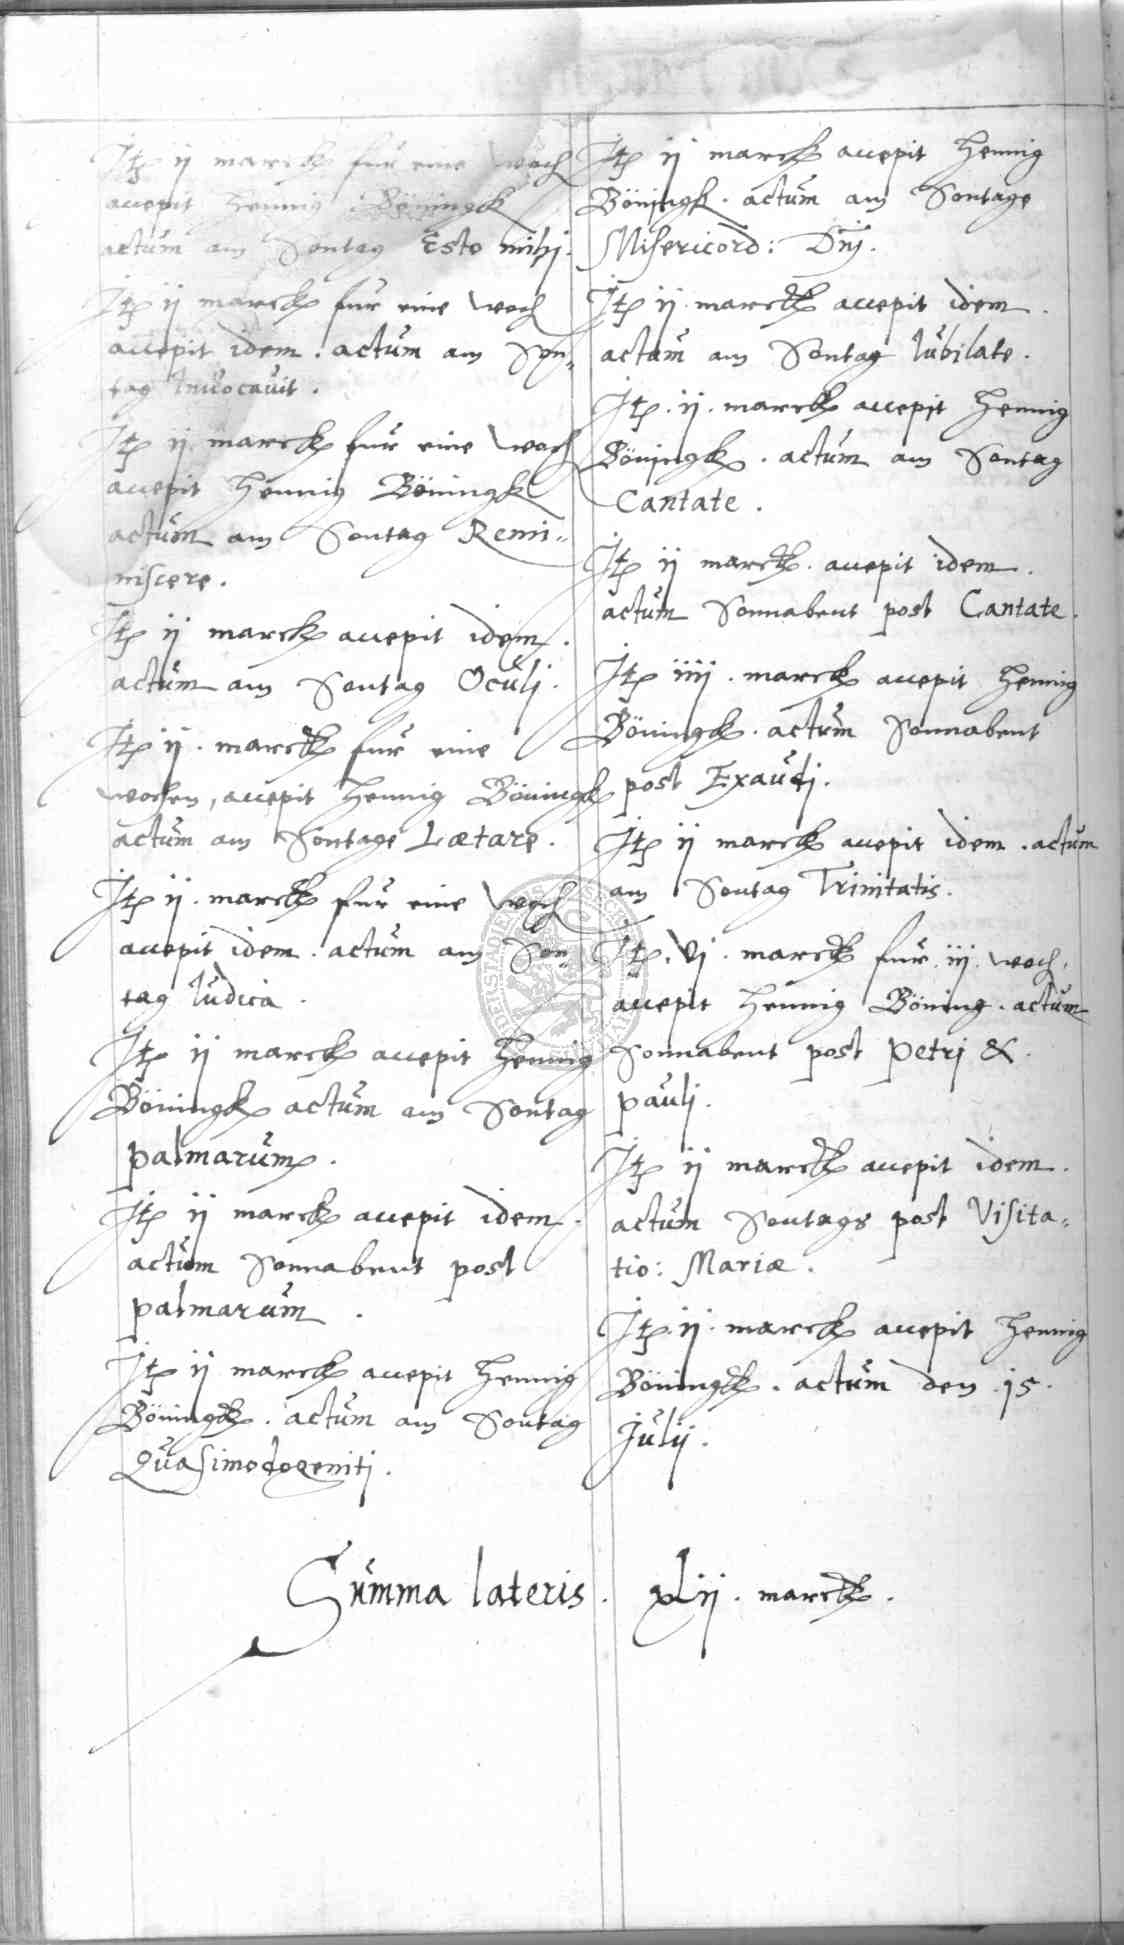 Itƺ ij marck fur eine woch
accepit Hennig Böningck
actum am Sontag Esto mihj.
Itƺ ij marck fur eine woch
accepit idem. actum am Son-
tag Inuocauit.
Itƺ ij marck fur eine woch
accepit Hennig Böningk
actum am Sontag Remi-
niscere.
Itƺ ij marck accepit idem.
actum am Sontag Oculj.
Itƺ ij. marck fur eine
wochen, accepit Hennig Böningk
actum am Sontage Lætare.
Itƺ ij. marck fur eine woch
accepit idem. actum am Son-
tag Iudica.
Itƺ ij marck accepit Hennig
Böningk actum am Sontag
palmarum.
Itƺ ij marck accepit idem.
actum Sonnabent post
palmarum.
Itƺ ij marck accepit Hennig
Böningck. actum am Sontag
Quasimodogenitj.
Itƺ ij marck accepit Hennig
Böningk. actum am Sontage
Misericord: Dnj.
Itƺ ij. marck accepit idem.
actum am Sontag Iubilate.
Itƺ. ij. marck accepit Hennig
Böningk. actum am Sontag
Cantate.
Itƺ ij marck. accepit idem.
actum Sonnabent post Cantate.
Itƺ iiij. marck accepit Hennig
Böningck. actum Sonnabent
post Exaudj.
Itƺ ij marck accepit idem. actum
am Sontag Trinitatis.
Itƺ. vj. marck fur. iij. woch.
accepit Hennig Böning. actum
Sonnabent post Petrj &
paulj.
Itƺ ij marck accepit idem.
actum Sontags post Visita-
tio: Mariæ.
Itƺ. ij. marck accepit Hennig
Böningck. actum den 15.
Julij.
Summa lateris. xlij. marck.